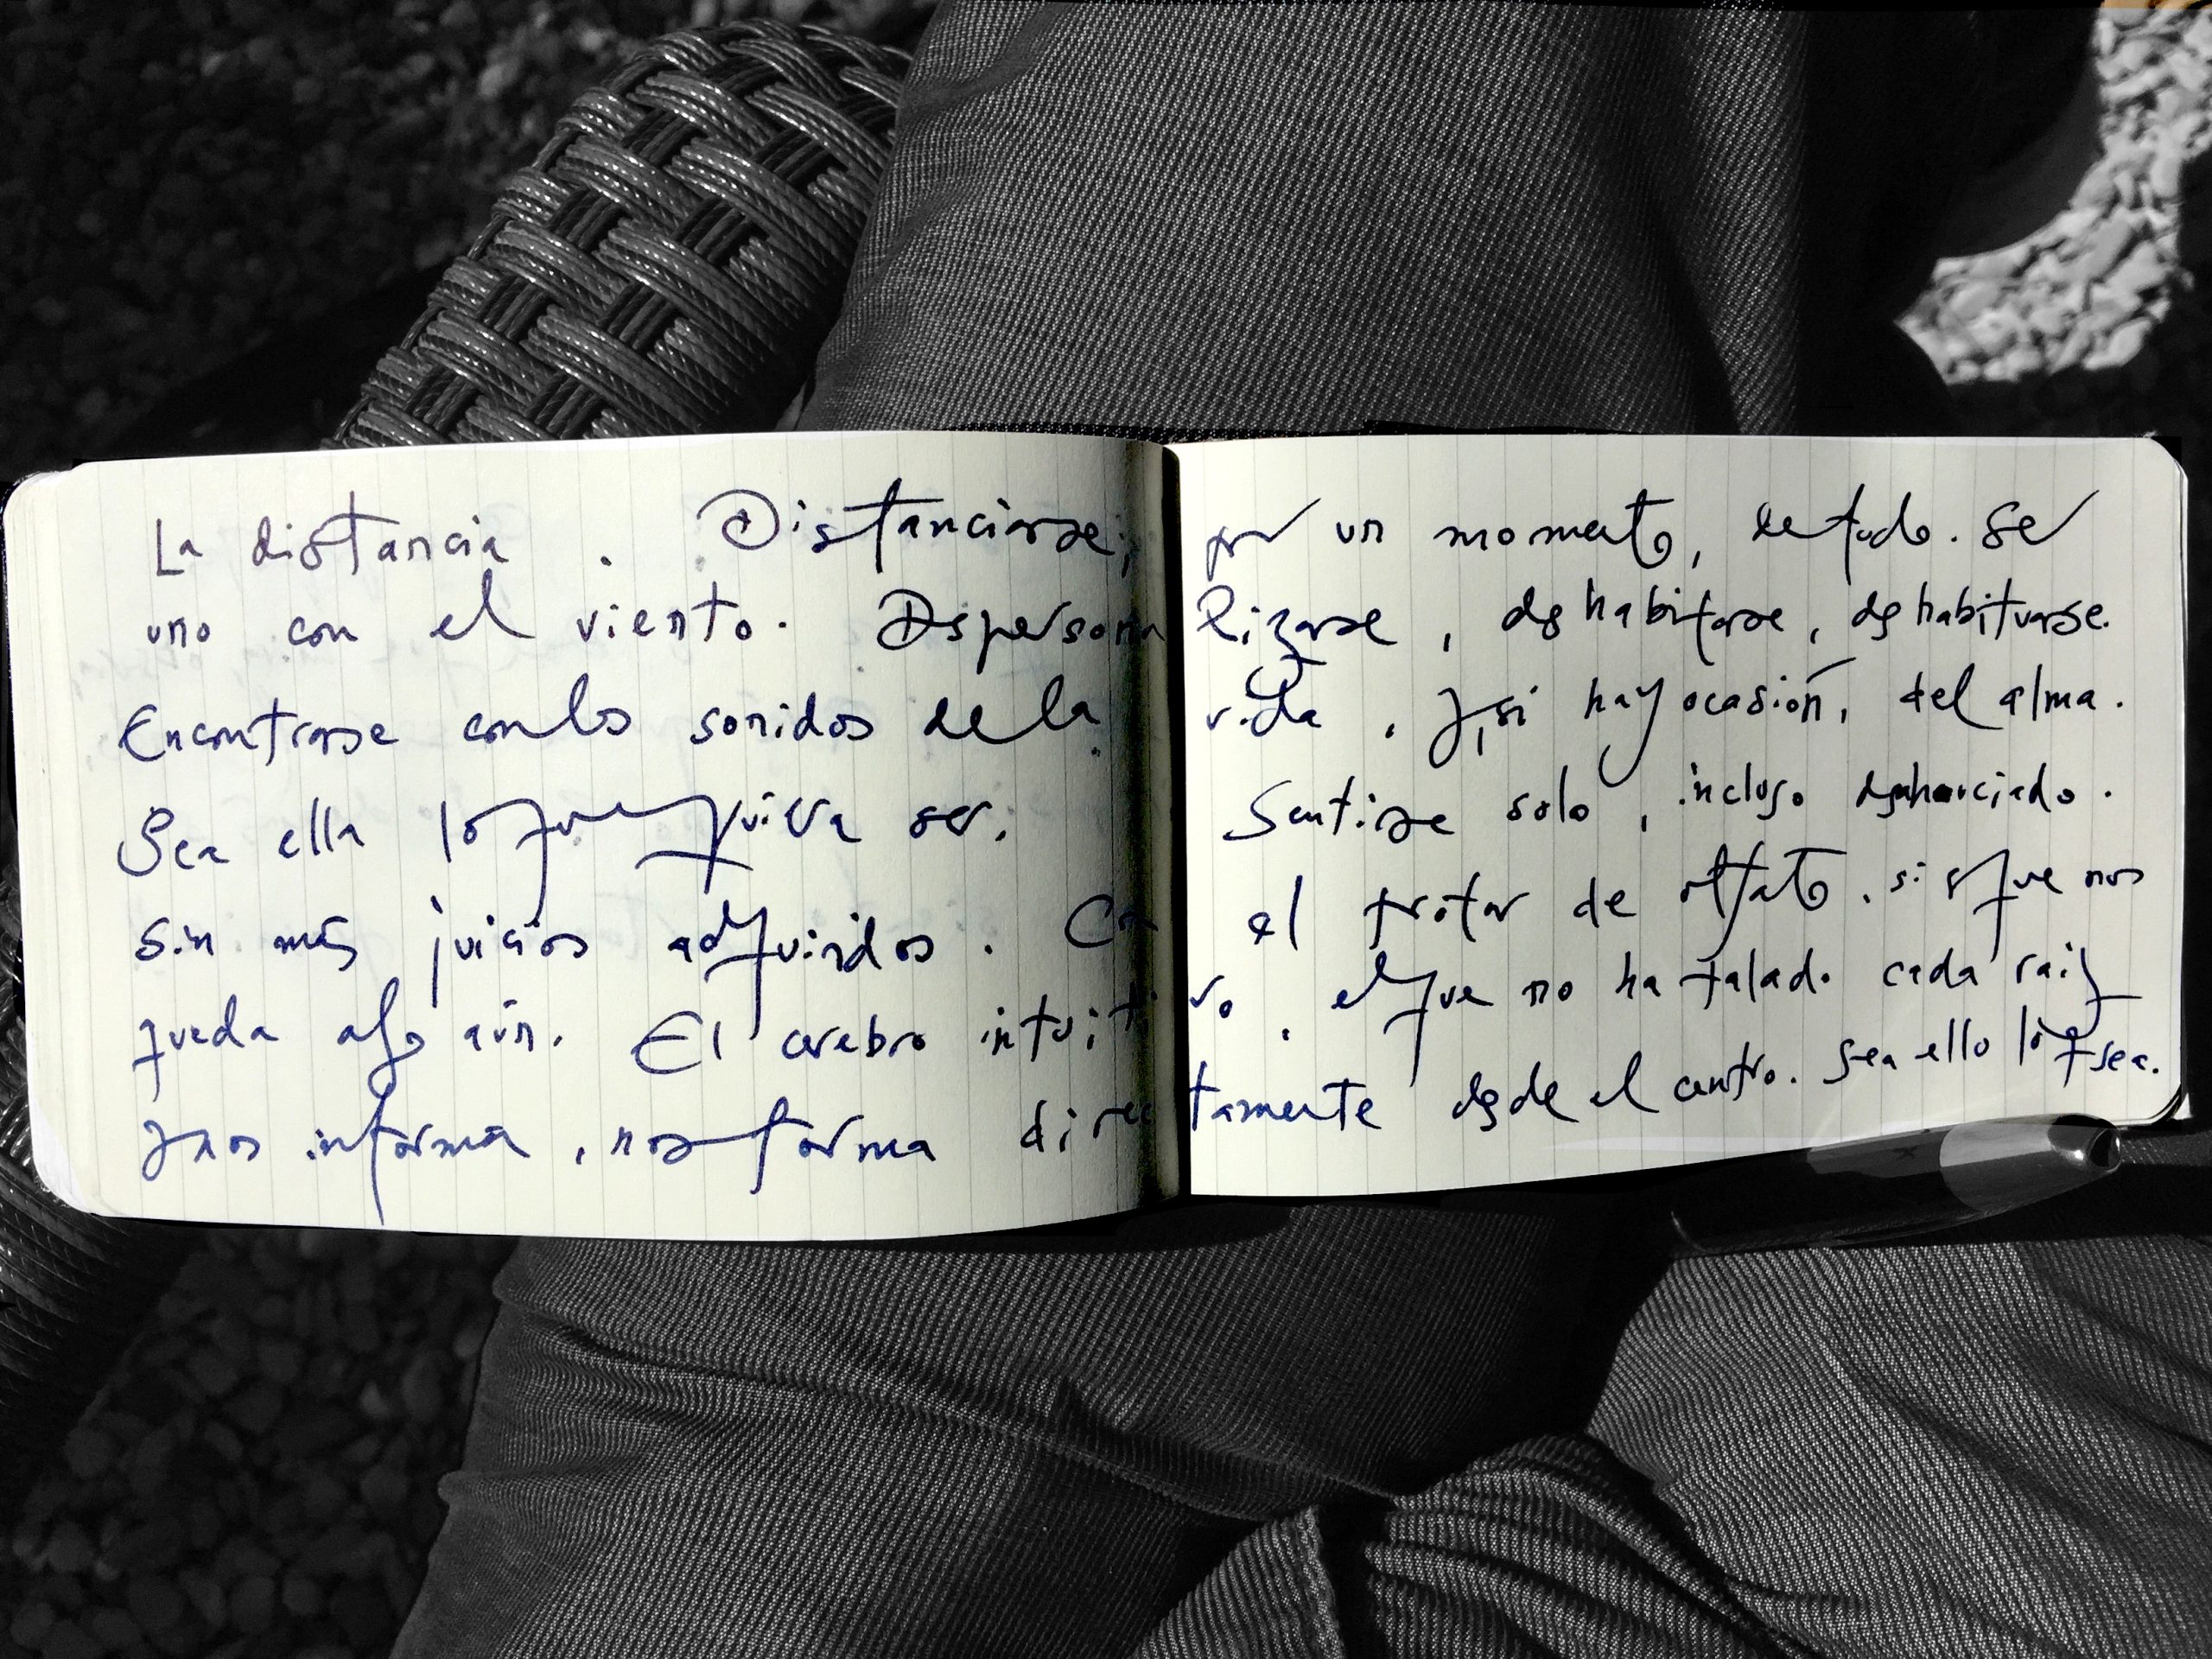 La distancia. Distanciarse, por un momento, de todo. Ser
uno con el viento. Despersonalizarse, deshabitarse, deshabituarse.
Encontrarse con los sonidos de la vida. Y, si hay ocasión, del alma.
Sea ella lo que quiera ser. Sentirse solo, incluso
sin más juicios adquiridos. Con el trotar de olfato. si es que nos
queda algo aún. El cerebro intuitivo. el que no ha talado cada raíz
y nos informa, nos forma directamente desde el centro. Sea ello lo q sea.